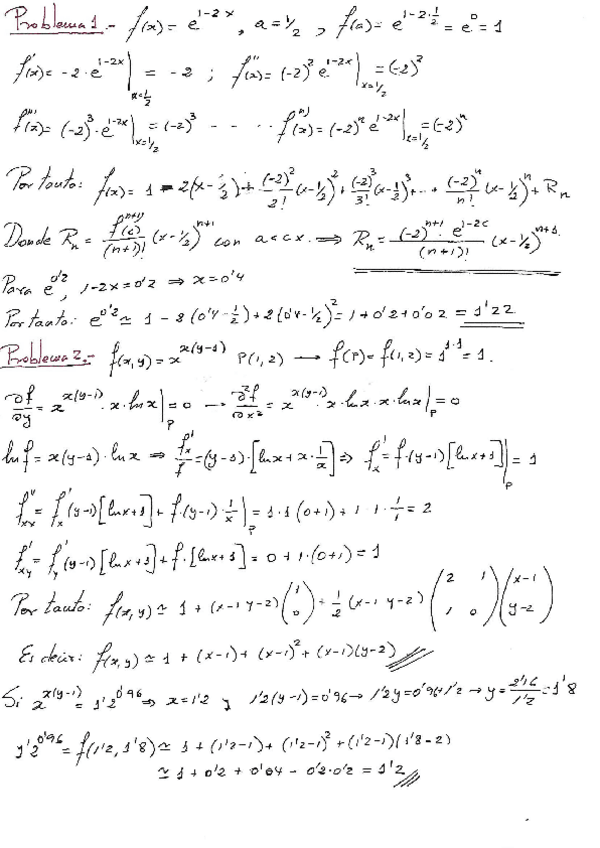 Problema 1.- f(x) = e^{1-2x}, a = 1/2, f(a) = e^{1-2·1/2} = e^0 = 1
f'(x) = -2·e^{1-2x}|_{x=1/2} = -2 ; f''(x) = (-2)^2 e^{1-2x}|_{x=1/2} = (-2)^2
f'''(x) = (-2)^3·e^{1-2x}|_{x=1/2} = (-2)^3 - - · · f^{n)}(x) = (-2)^n e^{1-2x}|_{x=1/2} = (-2)^n
Por tanto: f(x) = 1 - 2(x-1/2) + (-2)^2/2! (x-1/2)^2 + (-2)^3/3! (x-1/2)^3 + ··· + (-2)^n/n! (x-1/2)^n + R_n
Donde R_n = f^{n+1)}(c)/(n+1)! (x-1/2)^{n+1} con a<c<x. ⇒ R_n = (-2)^{n+1}·e^{1-2c}/(n+1)! (x-1/2)^{n+1}.
Para e^{0'2}, 1-2x = 0'2 ⇒ x = 0'4
Por tanto: e^{0'2} ≃ 1 - 2(0'4-1/2) + 2(0'4-1/2)^2 = 1 + 0'2 + 0'02 = 1'22
Problema 2.- f(x,y) = x^{x(y-1)} P(1,2) → f(P) = f(1,2) = 1^{1·1} = 1.
∂f/∂y = x^{x(y-1)}·x·ln x|_P = 0 → ∂²f/∂x² = x^{x(y-1)}·x·ln x·x·ln x|_P = 0
ln f = x(y-1)·ln x ⇒ f'_x/f = (y-1)·[ln x + x·1/x] ⇒ f'_x = f·(y-1)[ln x+1]|_P = 1
f''_{xx} = f'_x(y-1)[ln x+1] + f·(y-1)·1/x|_P = 1·1(0+1) + 1·1·1/1 = 2
f'_{xy} = f'_y(y-1)[ln x+1] + f·[ln x+1] = 0 + 1·(0+1) = 1
Por tanto: f(x,y) ≃ 1 + (x-1 y-2)(1 0) + 1/2 (x-1 y-2)(2 1 1 0)(x-1 y-2)
Es decir: f(x,y) ≃ 1 + (x-1) + (x-1)^2 + (x-1)(y-2)
Si x^{x(y-1)} = 1'2^{0'96} ⇒ x = 1'2 y 1'2(y-1) = 0'96 → 1'2y = 0'96+1'2 → y = 2'16/1'2 = 1'8
1'2^{0'96} = f(1'2, 1'8) ≃ 1 + (1'2-1) + (1'2-1)^2 + (1'2-1)(1'8-2)
≃ 1 + 0'2 + 0'04 - 0'2·0'2 = 1'2